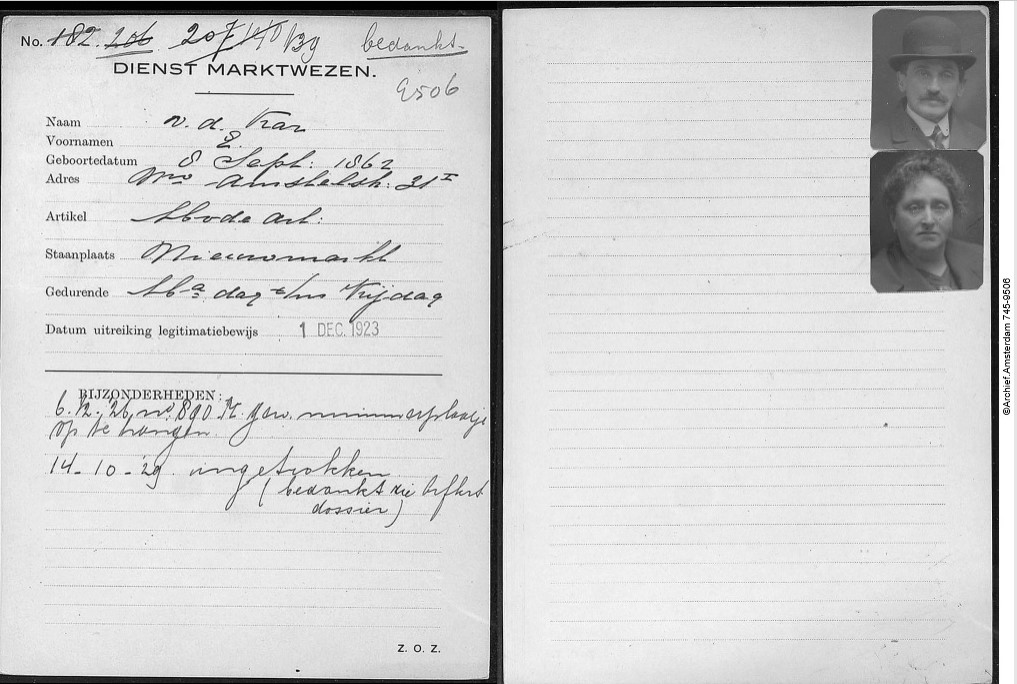 No. 182. 206 207 140/39 bedankt.
DIENST MARKTWEZEN.
9506
Naam v. d. Kar
Voornamen E.
Geboortedatum 8 Sept: 1862
Adres Nwe Amstelstr: 31 I
Artikel Mode art:
Staanplaats Nieuwmarkt
Gedurende Ma dag t/m Vrijdag
Datum uitreiking legitimatiebewijs 1 DEC. 1923
BIJZONDERHEDEN:
6.12.'26, no. 890 M. gew. nummerplaatje
op te hangen.
14-10-29 ingetrokken
(bedankt zie
dossier)
Z. O. Z.
©Archief.Amsterdam 745-9506